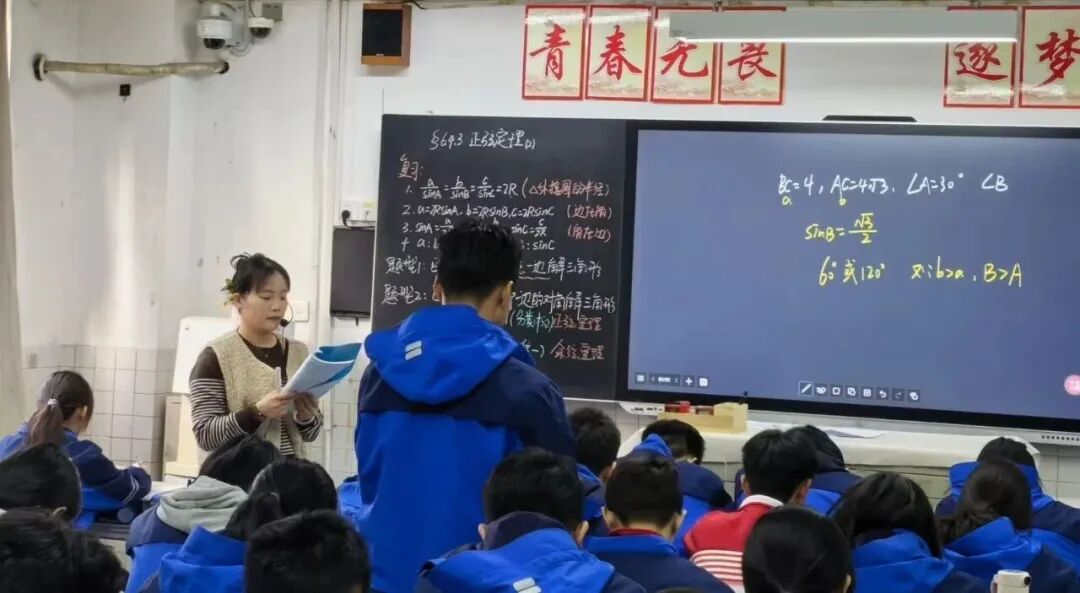 青春无丧
逐梦
§6.4.3 正弦定理(2)
复习:
1. a/sinA = b/sinB = c/sinC = 2R (△外接圆的半径)
2. a=2RsinA, b=2RsinB, c=2RsinC (边化角)
3. sinA= sinC=c/2R (角化边)
4. a:b sinC
题型1: 一边解三角形
题型2: 一边的对角解三角形
正弦定理
余弦定理
BC=4, AC=4√3, ∠A=30° ∠B
a b
sinB=√3/2
60°或120° 又∵b>a, B>A